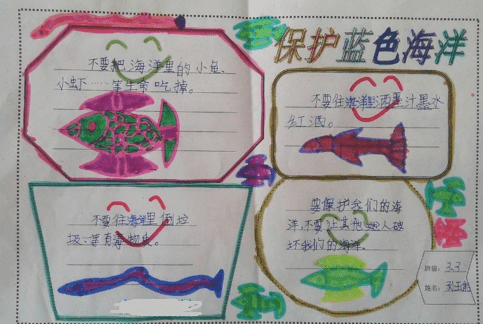 保护蓝色海洋
不要把海洋里的小鱼、
小虾……等生命吃掉。
不要往海洋洒墨汁黑水
红酒。
不要往海洋里倒垃
圾、等有毒物。
要保护我们的海
洋,不要让其他人破
坏我们的海洋。
班级: 3.3
姓名: